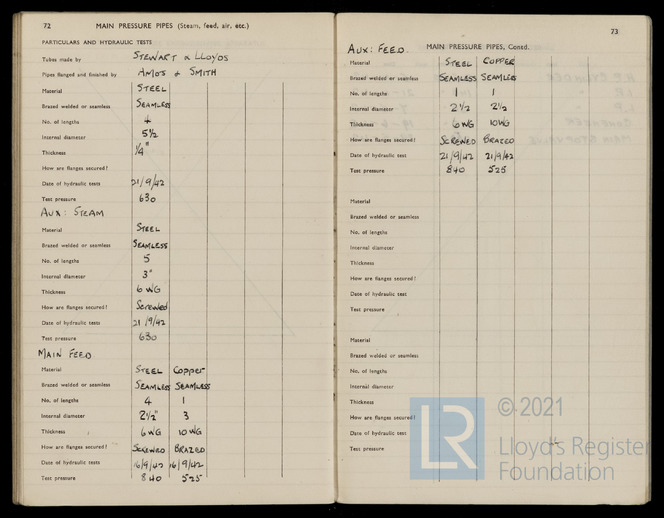 72 MAIN PRESSURE PIPES (Steam, feed, air, etc.)
PARTICULARS AND HYDRAULIC TESTS
Tubes made by STEWART & LLOYDS
Pipes flanged and finished by AMOS & SMITH
Material STEEL
Brazed welded or seamless SEAMLESS
No. of lengths 4
Internal diameter 5½
Thickness ¼"
How are flanges secured?
Date of hydraulic tests 21/9/42
Test pressure 630
AUX: STEAM
Material STEEL
Brazed welded or seamless SEAMLESS
No. of lengths 5
Internal diameter 3"
Thickness 6 WG
How are flanges secured? Screwed
Date of hydraulic tests 21/9/42
Test pressure 630
MAIN FEED
Material STEEL Copper
Brazed welded or seamless SEAMLESS SEAMLESS
No. of lengths 4 1
Internal diameter 2½" 3
Thickness 6WG 10WG
How are flanges secured? SCREWED BRAZED
Date of hydraulic tests 16/9/42 16/9/42
Test pressure 840 525
73
AUX: FEED. MAIN PRESSURE PIPES, Contd.
Material STEEL COPPER
Brazed welded or seamless SEAMLESS SEAMLESS
No. of lengths 1 1
Internal diameter 2½ 2½
Thickness 6WG 10WG
How are flanges secured? SCREWED BRAZED
Date of hydraulic test 21/9/42 21/9/42
Test pressure 840 525
Material
Brazed welded or seamless
No. of lengths
Internal diameter
Thickness
How are flanges secured?
Date of hydraulic test
Test pressure
Material
Brazed welded or seamless
No. of lengths
Internal diameter
Thickness
How are flanges secured?
Date of hydraulic test
Test pressure
LR
© 2021
Lloyd's Register
Foundation